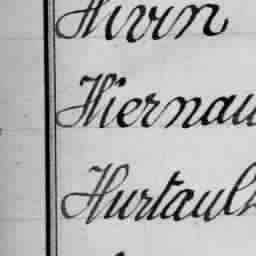 Hivin
Hiernau
Hurtault